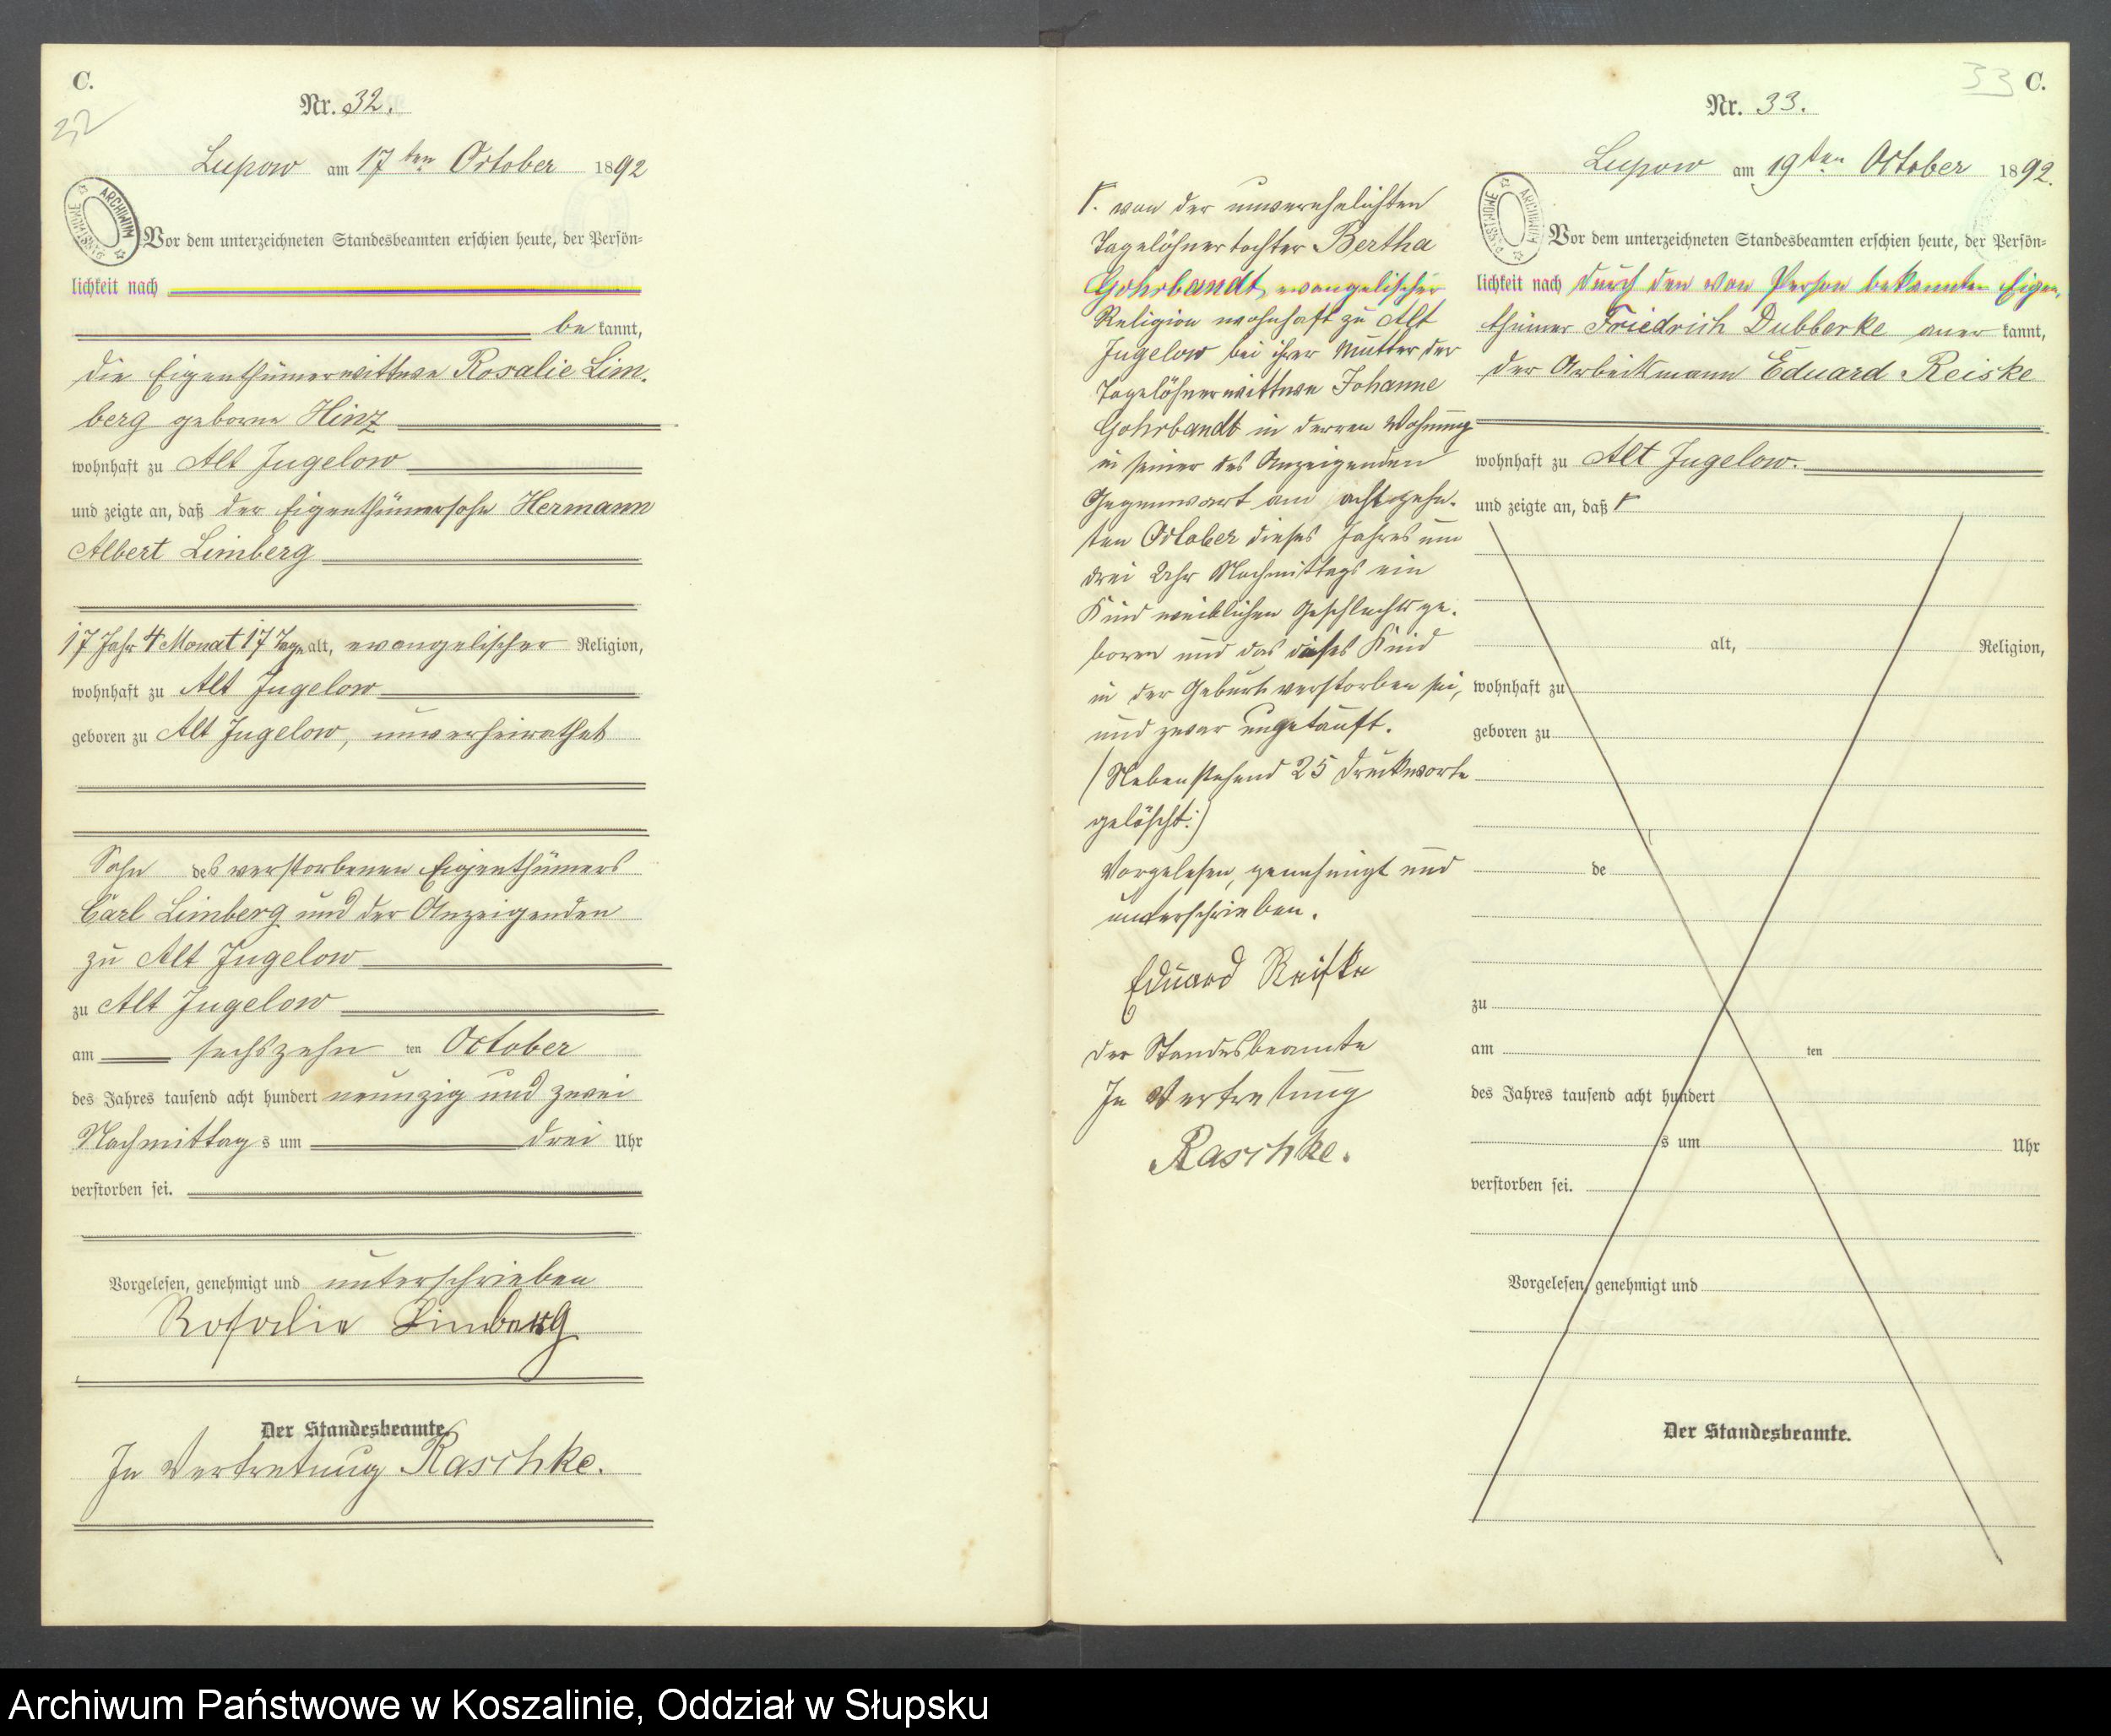 C.
32
Nr. 32.
Lupow am 17ten October 1892
ARCHIWUM PAŃSTWOWE
Vor dem unterzeichneten Standesbeamten erschien heute, der Persön=
lichkeit nach
be kannt,
die Eigenthümerwittwe Rosalie Lim-
berg geborne Hinz
wohnhaft zu Alt Jugelow
und zeigte an, daß der Eigenthümersohn Hermann
Albert Limberg
17 Jahr 4 Monat 17 Tage alt, evangelischer Religion,
wohnhaft zu Alt Jugelow
geboren zu Alt Jugelow, unverheirathet
Sohn des verstorbenen Eigenthümers
Carl Limberg und der Anzeigenden
zu Alt Jugelow
zu Alt Jugelow
am sechszehn ten October
des Jahres tausend acht hundert neunzig und zwei
Nachmittag s um drei Uhr
verstorben sei.
Vorgelesen, genehmigt und unterschrieben
Rosalie Limberg
Der Standesbeamte.
In Vertretung Raschke.
33 C.
Nr. 33.
Lupow am 19ten October 1892.
ARCHIWUM PAŃSTWOWE
Vor dem unterzeichneten Standesbeamten erschien heute, der Persön=
lichkeit nach durch den von Person bekannten Eigen-
thümer Friedrich Dubberke aner kannt,
der Arbeitsmann Eduard Reiske
wohnhaft zu Alt Jugelow.
und zeigte an, daß
alt, Religion,
wohnhaft zu
geboren zu
de
zu
am ten
des Jahres tausend acht hundert
s um Uhr
verstorben sei.
Vorgelesen, genehmigt und
Der Standesbeamte.
von der unverehelichten
Tagelöhnertochter Bertha
Gohrbandt, evangelischer
Religion wohnhaft zu Alt
Jugelow bei ihrer Mutter der
Tagelöhnerwittwe Johanne
Gohrbandt in derren Wohnung
in seiner des Anzeigenden
Gegenwart am achtzehn-
ten October dieses Jahres um
drei Uhr Nachmittags ein
Kind weiblichen Geschlechts ge-
boren und das dieses Kind
in der Geburt verstorben sei,
und zwar ungetauft.
(Nebenstehend 25 Druckworte
gelöscht:)
Vorgelesen, genehmigt und
unterschrieben.
Eduard Reiske
der Standesbeamte
In Vertretung
Raschke.
Archiwum Państwowe w Koszalinie, Oddział w Słupsku